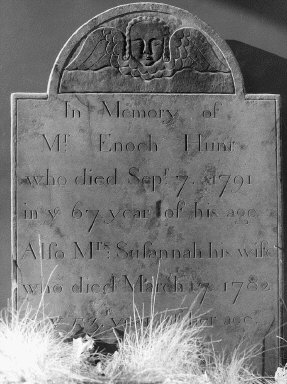 In Memory of
Mr Enoch Hunt
who died Sept 7, 1791
in ye 67 year of his age
Alſo Mrs: Suſannah his wife
who died March 17, 1782
year age